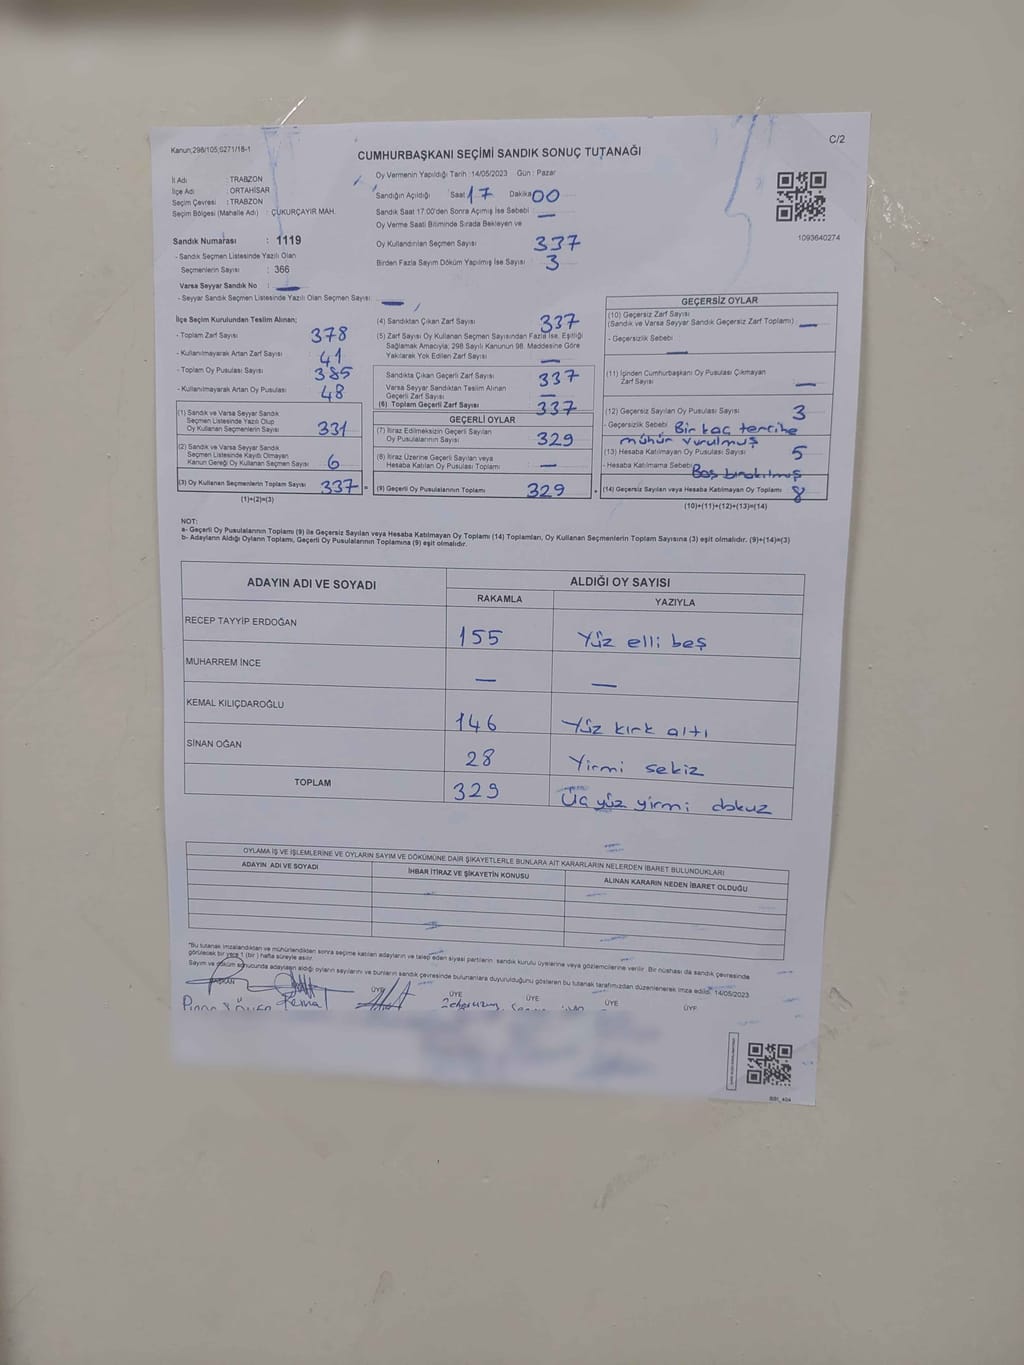 Kanun;298/105,6271/18-1
C/2
CUMHURBAŞKANI SEÇİMİ SANDIK SONUÇ TUTANAĞI
İl Adı : TRABZON
İlçe Adı : ORTAHİSAR
Seçim Çevresi : TRABZON
Seçim Bölgesi (Mahalle Adı) : ÇUKURÇAYIR MAH.
Sandık Numarası : 1119
- Sandık Seçmen Listesinde Yazılı Olan
Seçmenlerin Sayısı : 366
Varsa Seyyar Sandık No : —
- Seyyar Sandık Seçmen Listesinde Yazılı Olan Seçmen Sayısı: —
Oy Vermenin Yapıldığı Tarih :14/05/2023 Gün : Pazar
Sandığın Açıldığı Saat 17 Dakika 00
Sandık Saat 17:00'den Sonra Açımış İse Sebebi —
Oy Verme Saati Bitiminde Sırada Bekleyen ve
Oy Kullandırılan Seçmen Sayısı 337
Birden Fazla Sayım Döküm Yapılmış İse Sayısı 3
1093640274
İlçe Seçim Kurulundan Teslim Alınan;
- Toplam Zarf Sayısı 378
- Kullanılmayarak Artan Zarf Sayısı 41
- Toplam Oy Pusulası Sayısı 385
- Kullanılmayarak Artan Oy Pusulası 48
(1) Sandık ve Varsa Seyyar Sandık
Seçmen Listesinde Yazılı Olup
Oy Kullanan Seçmenlerin Sayısı 331
(2) Sandık ve Varsa Seyyar Sandık
Seçmen Listesinde Kayıtlı Olmayan
Kanun Gereği Oy Kullanan Seçmen Sayısı 6
(3) Oy Kullanan Seçmenlerin Toplam Sayısı 337 =
(1)+(2)=(3)
(4) Sandıktan Çıkan Zarf Sayısı 337
(5) Zarf Sayısı Oy Kullanan Seçmen Sayısından Fazla İse, Eşitliği
Sağlamak Amacıyla; 298 Sayılı Kanunun 98. Maddesine Göre
Yakılarak Yok Edilen Zarf Sayısı —
Sandıkta Çıkan Geçerli Zarf Sayısı 337
Varsa Seyyar Sandıktan Teslim Alınan
Geçerli Zarf Sayısı —
(6) Toplam Geçerli Zarf Sayısı 337
GEÇERLİ OYLAR
(7) İtiraz Edilmeksizin Geçerli Sayılan
Oy Pusulalarının Sayısı 329
(8) İtiraz Üzerine Geçerli Sayılan veya
Hesaba Katılan Oy Pusulası Toplamı —
(9) Geçerli Oy Pusulalarının Toplamı 329 +
GEÇERSİZ OYLAR
(10) Geçersiz Zarf Sayısı
(Sandık ve Varsa Seyyar Sandık Geçersiz Zarf Toplamı) —
- Geçersizlik Sebebi: —
(11) İçinden Cumhurbaşkanı Oy Pusulası Çıkmayan
Zarf Sayısı —
(12) Geçersiz Sayılan Oy Pusulası Sayısı 3
- Geçersizlik Sebebi Bir kaç tercihe
mühür vurulmuş
(13) Hesaba Katılmayan Oy Pusulası Sayısı 5
- Hesaba Katılmama Sebebi Boş bırakılmış
(14) Geçersiz Sayılan veya Hesaba Katılmayan Oy Toplamı 8
(10)+(11)+(12)+(13)=(14)
NOT:
a- Geçerli Oy Pusulalarının Toplamı (9) ile Geçersiz Sayılan veya Hesaba Katılmayan Oy Toplamı (14) Toplamları, Oy Kullanan Seçmenlerin Toplam Sayısına (3) eşit olmalıdır. (9)+(14)=(3)
b- Adayların Aldığı Oyların Toplamı, Geçerli Oy Pusulalarının Toplamına (9) eşit olmalıdır.
ADAYIN ADI VE SOYADI ALDIĞI OY SAYISI
RAKAMLA YAZIYLA
RECEP TAYYİP ERDOĞAN 155 Yüz elli beş
MUHARREM İNCE — —
KEMAL KILIÇDAROĞLU 146 Yüz kırk altı
SİNAN OĞAN 28 Yirmi sekiz
TOPLAM 329 Üç yüz yirmi dokuz
OYLAMA İŞ VE İŞLEMLERİNE VE OYLARIN SAYIM VE DÖKÜMÜNE DAİR ŞİKAYETLERLE BUNLARA AİT KARARLARIN NELERDEN İBARET BULUNDUKLARI
ADAYIN ADI VE SOYADI İHBAR İTİRAZ VE ŞİKAYETİN KONUSU ALINAN KARARIN NEDEN İBARET OLDUĞU
"Bu tutanak imzalandıktan ve mühürlendikten sonra seçime katılan adayların ve talep eden siyasi partilerin sandık kurulu üyelerine veya gözlemcilerine verilir. Bir nüshası da sandık çevresinde
görülecek bir yere 1 (bir) hafta süreyle asılır.
Sayım ve döküm sonucunda adayların aldığı oyların sayılarını ve bunların sandık çevresinde bulunanlara duyurulduğunu gösteren bu tutanak tarafımızdan düzenlenerek imza edildi. 14/05/2023
BAŞKAN ÜYE ÜYE ÜYE ÜYE ÜYE
Kemal